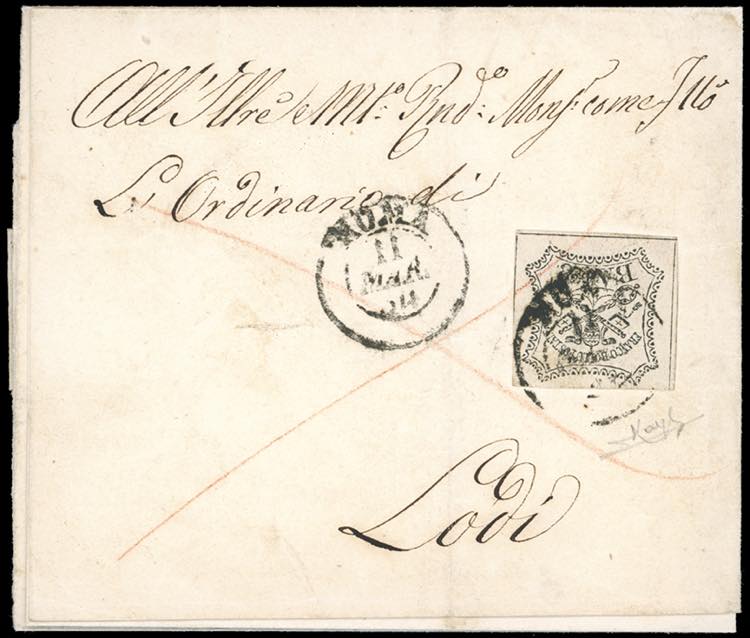 All' Illre e Mto. Rnd.o Monsr. come Illo
L'Ordinario di
ROMA
11
MAR.
BAJ
FRANCO BOLLO POSTALE
11
Lodi